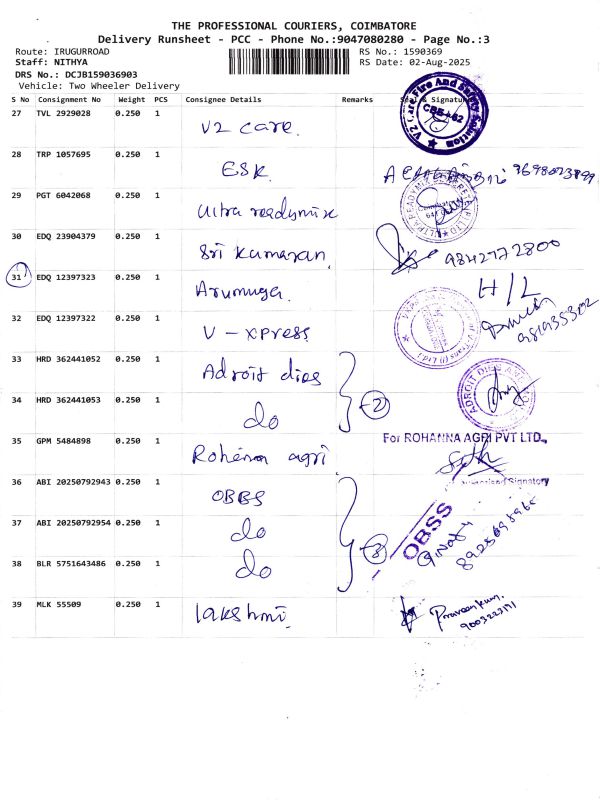 THE PROFESSIONAL COURIERS, COIMBATORE
Delivery Runsheet - PCC - Phone No.:9047080280 - Page No.:3
Route: IRUGURROAD
RS No.: 1590369
Staff: NITHYA
RS Date: 02-Aug-2025
DRS No.: DCJB159036903
Vehicle: Two Wheeler Delivery
S No Consignment No Weight PCS Consignee Details Remarks Seal & Signature
27 TVL 2929028 0.250 1 V2 care
V2 Care Fire And Safety Solution
28 TRP 1057695 0.250 1 ESK
29 PGT 6042068 0.250 1 Ultra readymix
30 EDQ 23904379 0.250 1 Sri Kumaran 9842772800
31 EDQ 12397323 0.250 1 Arumuga H/L
32 EDQ 12397322 0.250 1 V - xpress
33 HRD 362441052 0.250 1 Adroit dies
34 HRD 362441053 0.250 1 do
2
ADROIT DIES AND
35 GPM 5484898 0.250 1 Rohanna agri
For ROHANNA AGRI PVT LTD.,
Authorised Signatory
36 ABI 20250792943 0.250 1 OBBS
37 ABI 20250792954 0.250 1 do
38 BLR 5751643486 0.250 1 do
3
OBSS
39 MLK 55509 0.250 1 lakshmi
Praveen kum.
9003223171